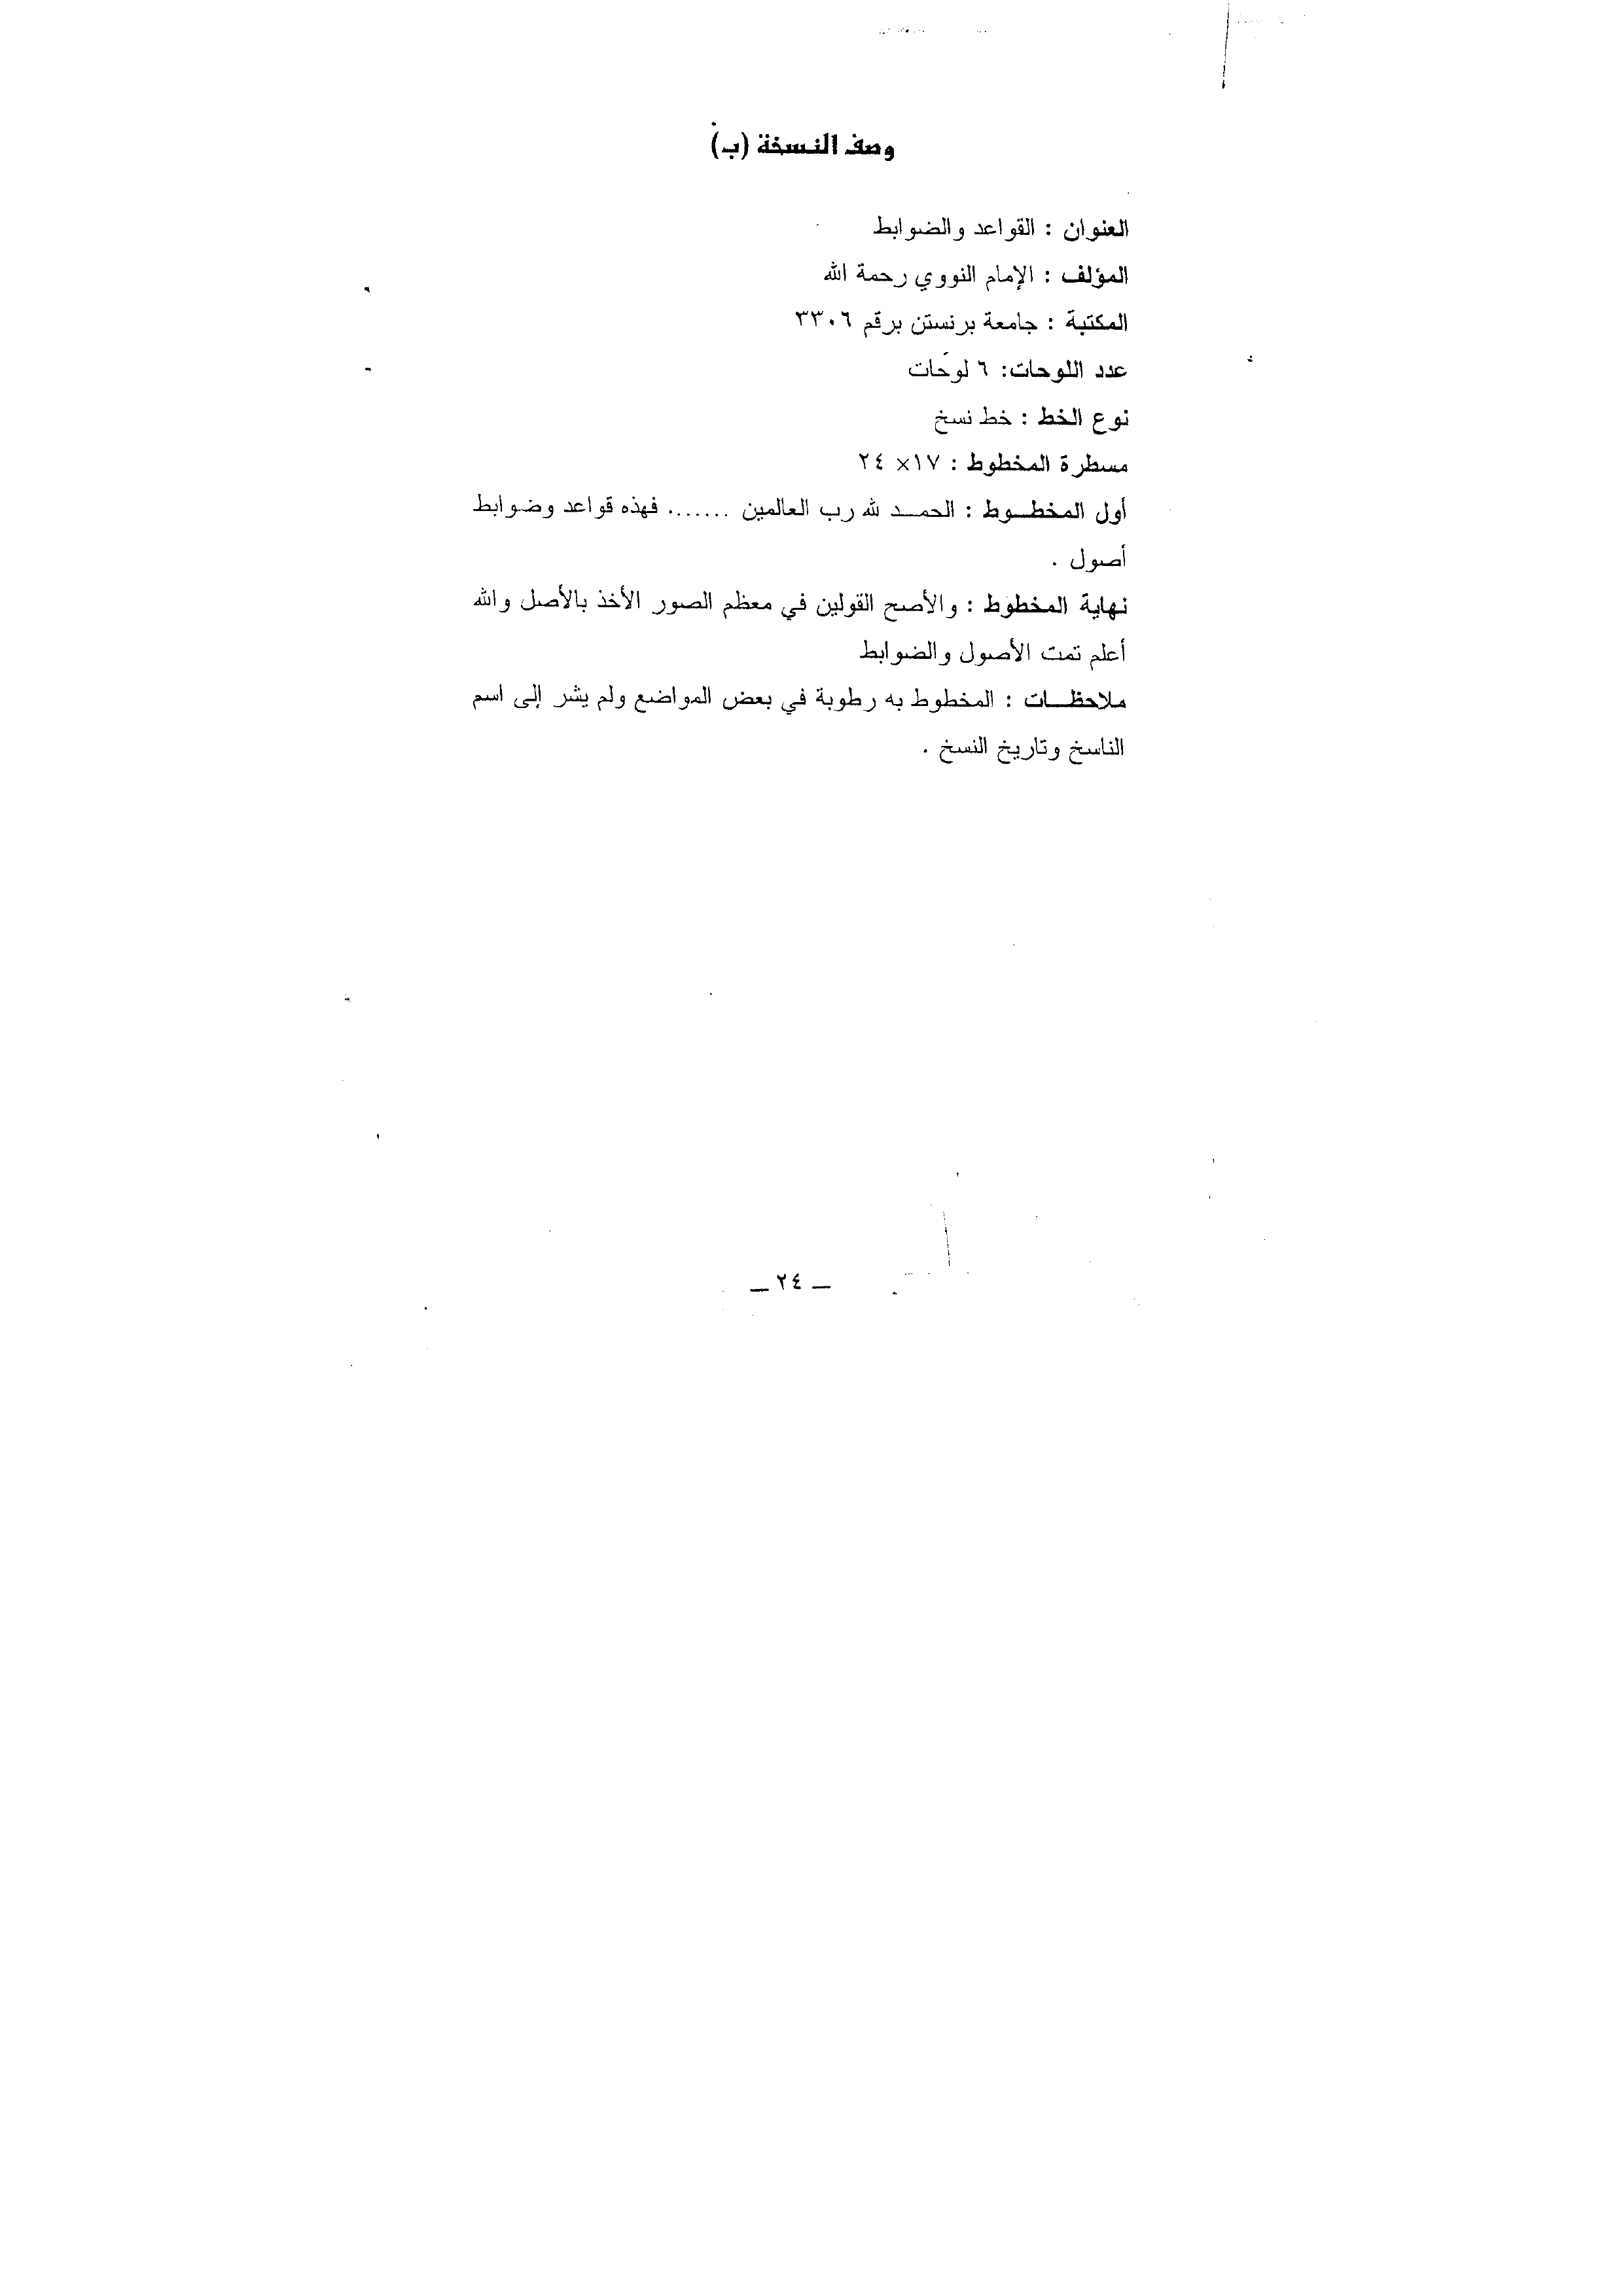 وصف النسخة (ب)
العنوان : القواعد والضوابط
المؤلف : الإمام النووي رحمة الله
المكتبة : جامعة برنستن برقم ٣٣٠٦
عدد اللوحات: ٦ لوحات
نوع الخط : خط نسخ
مسطرة المخطوط : ١٧× ٢٤
أول المخطـوط : الحمـد لله رب العالمين ....... فهذه قواعد وضوابط
أصول .
نهاية المخطوط : والأصح القولين في معظم الصور الأخذ بالأصل والله
أعلم تمت الأصول والضوابط
ملاحظـات : المخطوط به رطوبة في بعض المواضع ولم يشر إلى اسم
الناسخ وتاريخ النسخ .
ـ ٢٤ ـ